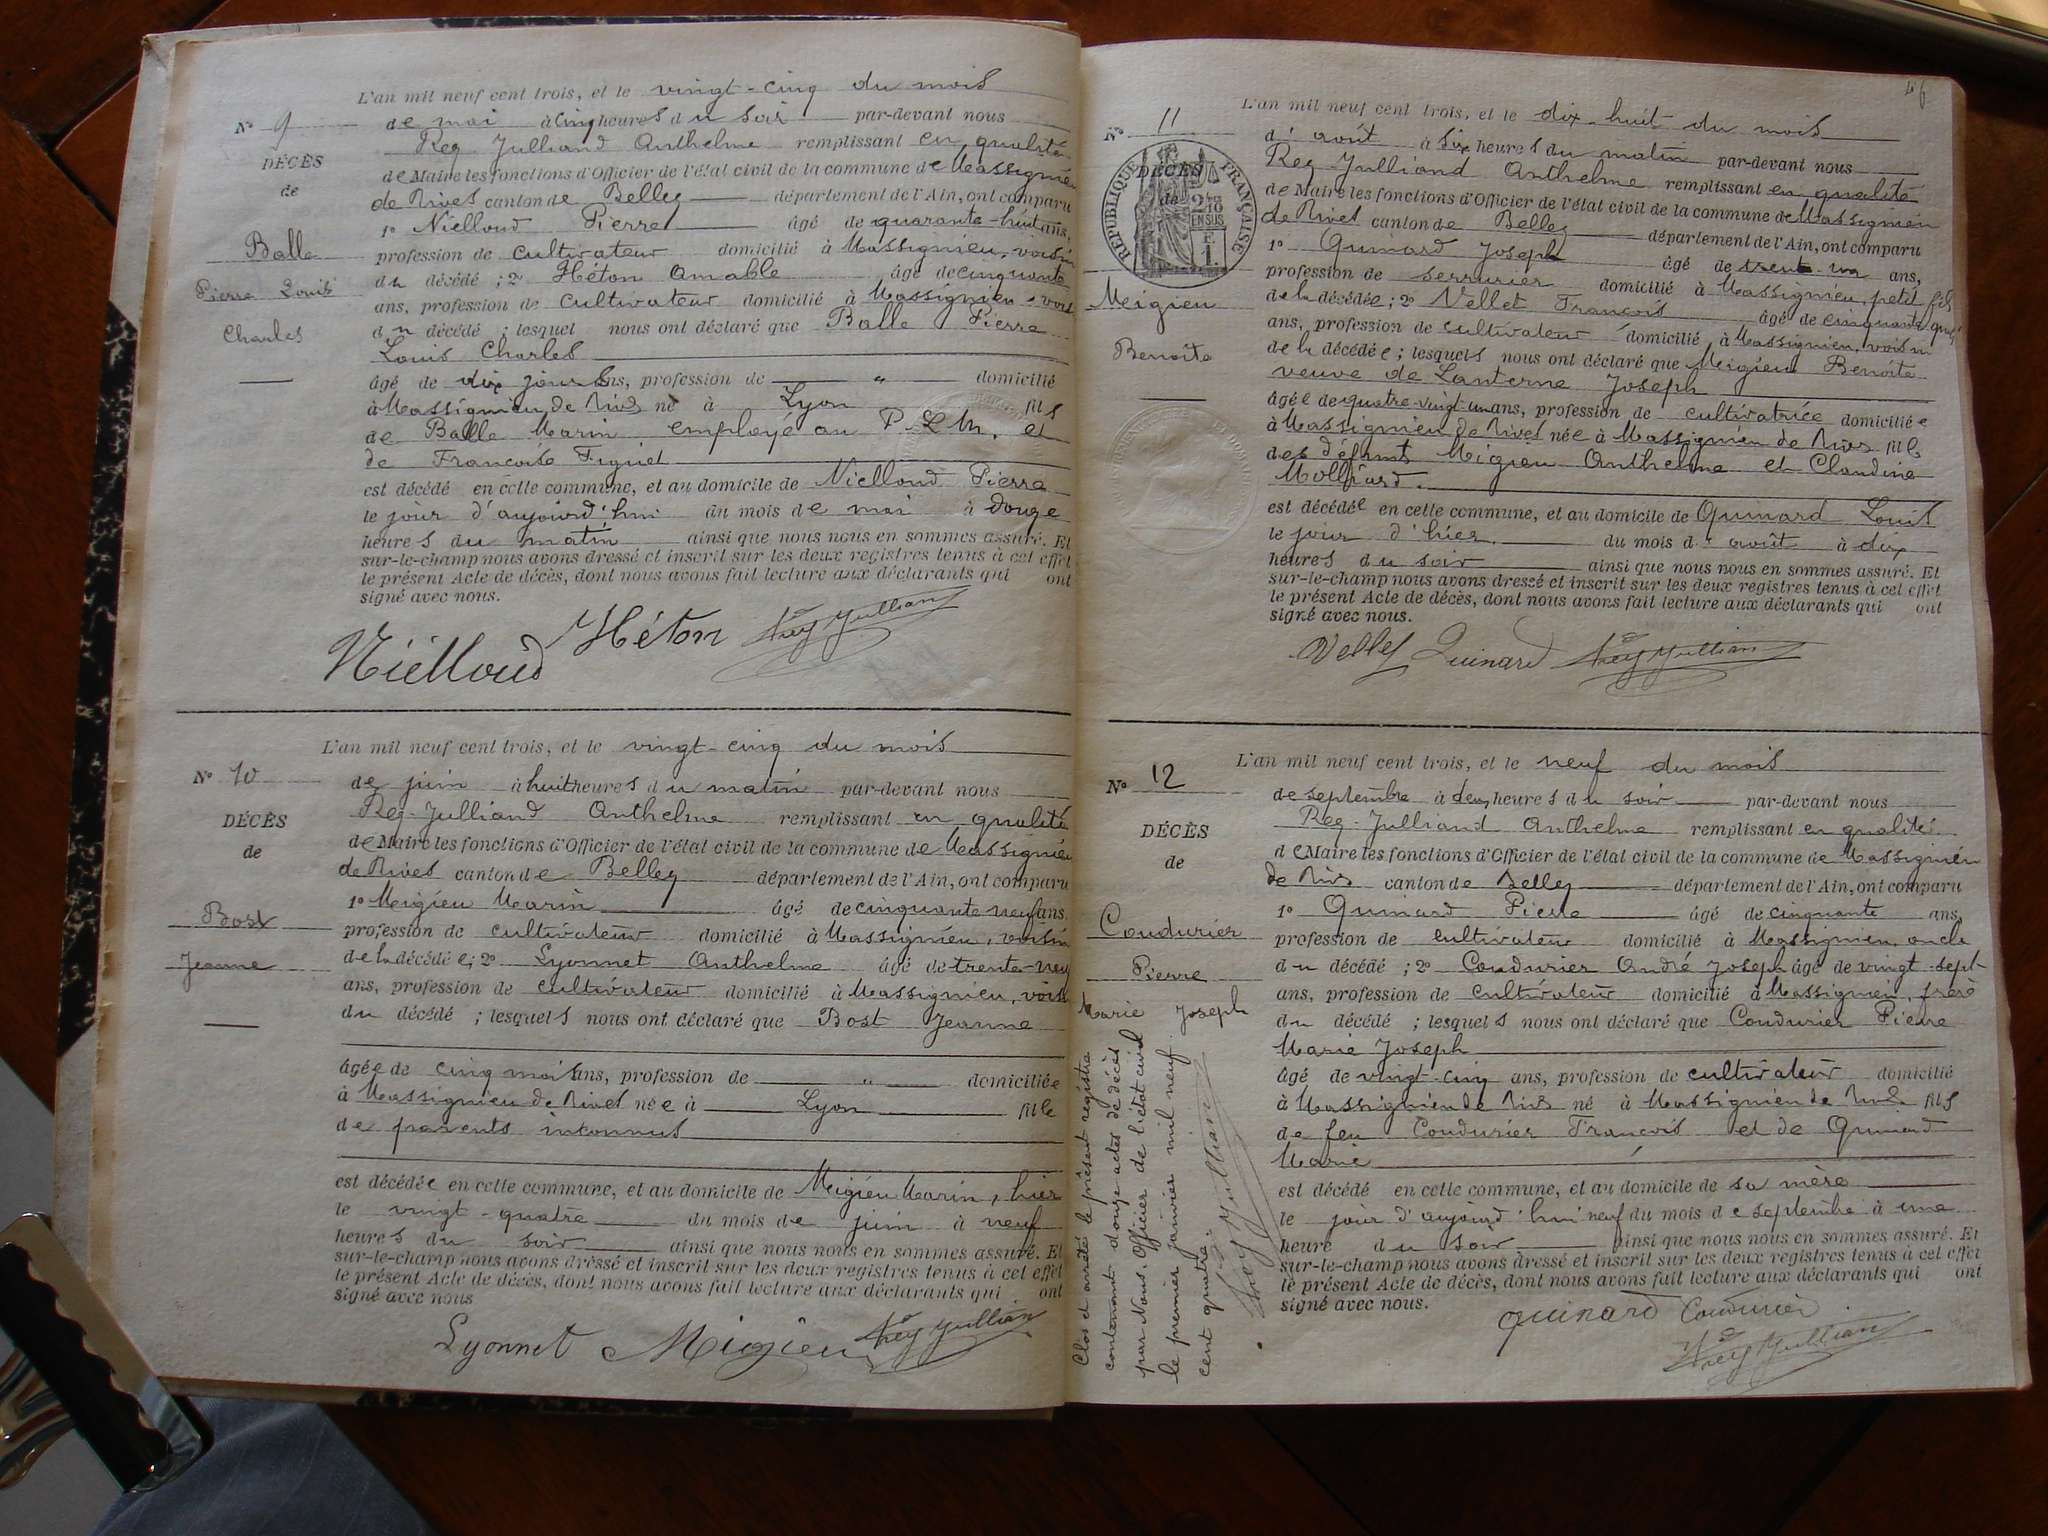 L'an mil neuf cent trois, et le vingt-cinq du mois
N° 9
de mai à cinq heures du soir par-devant nous
DÉCÈS
Rey Julliand Anthelme remplissant en qualité
de
de Maire les fonctions d'Officier de l'état civil de la commune de Massignieu
de Rives canton de Belley département de l'Ain, ont comparu
Balle
Pierre Louis
Charles
1° Nielloud Pierre âgé de quarante-huit ans,
profession de cultivateur domicilié à Massignieu, voisin
du décédé; 2° Héton Amable âgé de cinquante
ans, profession de cultivateur domicilié à Massignieu, vois
du décédé; lesquel nous ont déclaré que Balle Pierre
Louis Charles
âgé de dix jours ans, profession de " domicilié
à Massignieu de Rives né à Lyon fils
de Balle Marin employé au P. L. M. et
de Françoise Figuet
est décédé en cette commune, et au domicile de Nielloud Pierre
le jour d'aujourd'hui du mois de mai à douze
heures du matin ainsi que nous nous en sommes assuré. Et
sur-le-champ nous avons dressé et inscrit sur les deux registres tenus à cet effet
le présent Acte de décès, dont nous avons fait lecture aux déclarants qui ont
signé avec nous.
Nielloud Héton Rey Jullian
L'an mil neuf cent trois, et le vingt-cinq du mois
N° 10
de juin à huit heures du matin par-devant nous
DÉCÈS
Rey-Julliand Anthelme remplissant en qualité
de
de Maire les fonctions d'Officier de l'état civil de la commune de Massignieu
de Rives canton de Belley département de l'Ain, ont comparu
Bost
Jeanne
1° Migieu Marin âgé de cinquante neuf ans,
profession de cultivateur domicilié à Massignieu, voisin
de la décédée; 2° Lyonnet Anthelme âgé de trente-neuf
ans, profession de cultivateur domicilié à Massignieu, voisin
du décédé; lesquels nous ont déclaré que Bost Jeanne
âgée de cinq mois ans, profession de " domiciliée
à Massignieu de Rives née à Lyon fille
de parents inconnus
est décédée en cette commune, et au domicile de Migieu Marin, hier
le vingt-quatre du mois de juin à neuf
heures du soir ainsi que nous nous en sommes assuré. Et
sur-le-champ nous avons dressé et inscrit sur les deux registres tenus à cet effet
le présent Acte de décès, dont nous avons fait lecture aux déclarants qui ont
signé avec nous
Lyonnet Migieu Rey Jullian
L'an mil neuf cent trois, et le dix-huit du mois
N° 11
d'août à six heures du matin par-devant nous
DÉCÈS
de
RÉPUBLIQUE FRANÇAISE
Rey Julliand Anthelme remplissant en qualité
de Maire les fonctions d'Officier de l'état civil de la commune de Massignieu
de Rives canton de Belley département de l'Ain, ont comparu
Meigieu
Benoîte
1° Quinard Joseph âgé de trente-un ans,
profession de serrurier domicilié à Massignieu, petit fils
de la décédée; 2° Vellet François âgé de cinquante
ans, profession de cultivateur domicilié à Massignieu, voisin
de la décédée; lesquels nous ont déclaré que Migieu Benoîte
veuve de Lanterne Joseph
âgée de quatre-vingt-un ans, profession de cultivatrice domiciliée
à Massignieu de Rives née à Massignieu de Rives fille
des défunts Migieu Anthelme et Claudine
Molliard.
est décédée en cette commune, et au domicile de Quinard Louis
le jour d'hier. du mois d'août à dix
heures du soir ainsi que nous nous en sommes assuré. Et
sur-le-champ nous avons dressé et inscrit sur les deux registres tenus à cet effet
le présent Acte de décès, dont nous avons fait lecture aux déclarants qui ont
signé avec nous.
Vellet Quinard Rey Jullian
L'an mil neuf cent trois, et le neuf du mois
N° 12
de septembre à deux heures du soir par-devant nous
DÉCÈS
Rey-Julliand Anthelme remplissant en qualité
de
de Maire les fonctions d'Officier de l'état civil de la commune de Massignieu
de Rives canton de Belley département de l'Ain, ont comparu
Coudurier
Pierre
Marie Joseph
1° Quinard Pierre âgé de cinquante ans,
profession de cultivateur domicilié à Massignieu, oncle
du décédé; 2° Coudurier André Joseph âgé de vingt-sept
ans, profession de cultivateur domicilié à Massignieu, frère
du décédé; lesquels nous ont déclaré que Coudurier Pierre
Marie Joseph
âgé de vingt-cinq ans, profession de cultivateur domicilié
à Massignieu de Rives né à Massignieu de Rives fils
de feu Coudurier François et de Quinard
Marie
est décédé en cette commune, et au domicile de sa mère
le jour d'aujourd'hui neuf du mois de septembre à une
heure du soir ainsi que nous nous en sommes assuré. Et
sur-le-champ nous avons dressé et inscrit sur les deux registres tenus à cet effet
le présent Acte de décès, dont nous avons fait lecture aux déclarants qui ont
signé avec nous.
Quinard Coudurier
Rey Jullian
Clos et arrêté le présent registre
contenant douze actes de décès
par Nous, Officier de l'état civil
le premier janvier mil neuf
cent quatre.
Rey Jullian